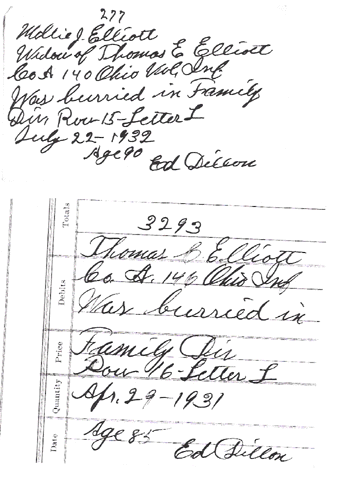 277
Mollie J. Elliott
Widow of Thomas E Elliott
Co A 140 Ohio Vol, Inf
Was burried in Family
Div Row-15-Letter L
July 22-1932
Age 90
Ed Dillon
Totals
Debits
Price
Quantity
Date
3293
Thomas E Elliott
Co. A. 140 Ohio Inf,
Was burried in
Family Div
Row-16-Letter L
Apr. 29-1931
Age 85
Ed Dillon